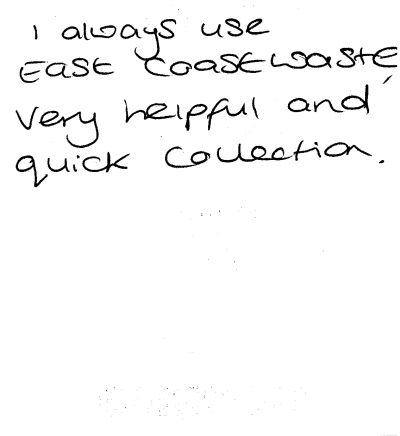 I always use
East Coastwaste,
very helpful and
quick collection.